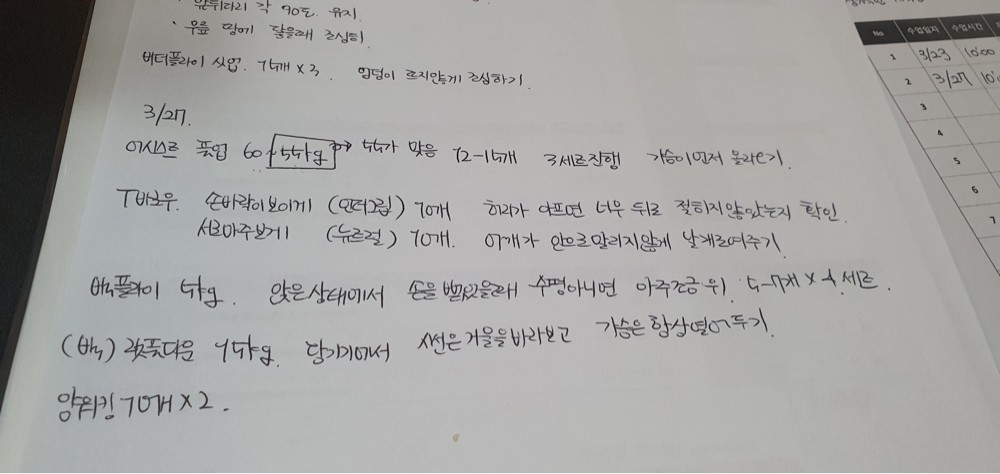 앞뒤다리 각 90도 유지
· 무릎 땅에 닿을때 조심히
버터플라이 싯업. 15개 x 3, 엉덩이 뜨지않게 조심하기.
3/27.
어시스트 풀업 60, 55kg → 55가 맞음 12-15개 3세트진행 가슴이먼저 올라오기.
T바로우. 손바닥이보이게 (언더그립) 10개 허리가 아프면 너무 뒤로 젖히지않았는지 확인.
서로마주보게 (뉴트럴) 10개. 어깨가 안으로말리지않게 날개모여주기
백플라이 5kg. 앉은상태에서 손을 뻗었을때 수평아니면 아주조금 위. 5-7개 x 4세트.
(백) 랫풀다운 15kg. 당기면서 시선은거울을바라보고 가슴은항상열어두기.
암워킹 10개 x 2.
No 수업일자 수업시간
1 3/23 10:00
2 3/27
3
4
5
6
7